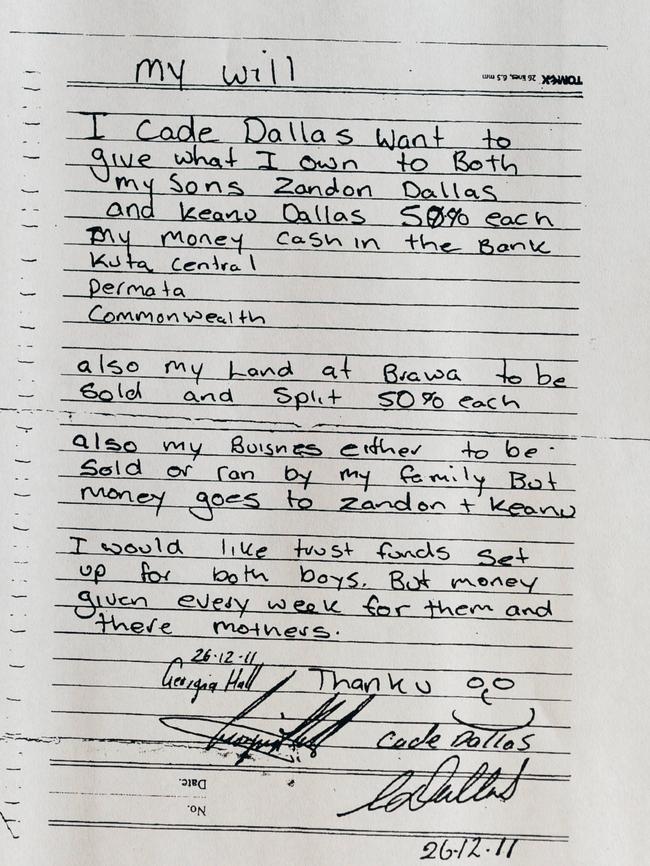 my will
TOMEX 26 lines, 6.5 mm
I Cade Dallas want to
give what I own to Both
my Sons Zandon Dallas
and Keanu Dallas 50% each
my money cash in the Bank
Kuta Central
Permata
Commonwealth
also my Land at Brawa to be
Sold and Split 50% each
also my Buisnes either to be
Sold or ran by my family But
money goes to Zandon + Keanu
I would like trust funds set
up for both boys. But money
given every week for them and
there mothers.
26-12-11
Georgia Hall
Thank u
Cade Dallas
Date.
No.
26-12-11